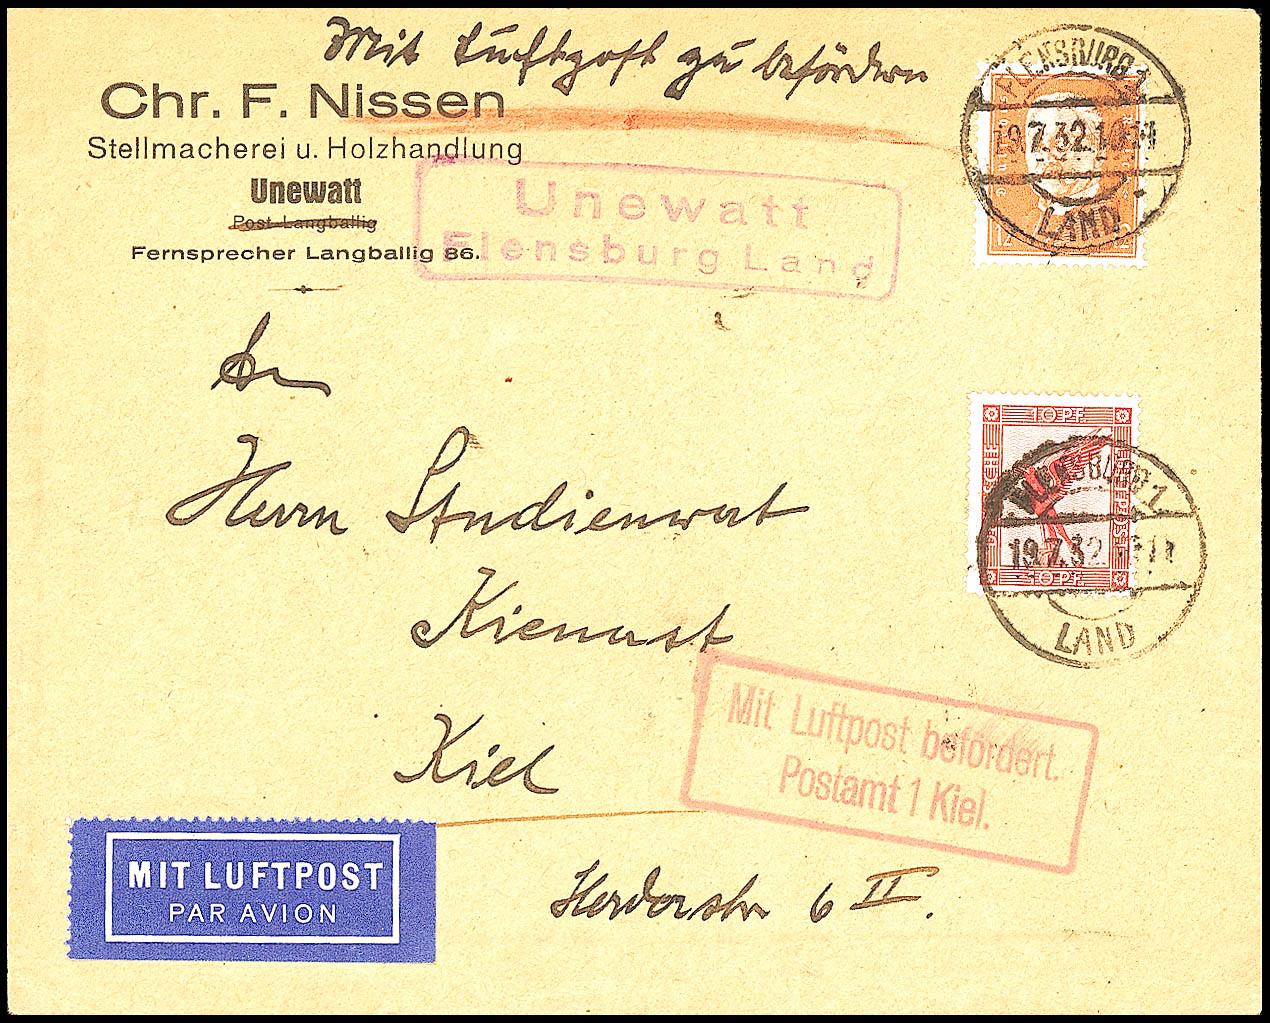 Mit Luftpost zu befördern
Chr. F. Nissen
Stellmacherei u. Holzhandlung
Unewatt
Post Langballig
Fernsprecher Langballig 86.
Unewatt
Flensburg Land
FLENSBURG 1
19.7.32.10-11
LAND
12
An
Herrn Studienrat
Kienast
Kiel
10 PF.
FLENSBURG 1
19.7.32
LAND
10 PF.
Mit Luftpost befördert.
Postamt 1 Kiel.
MIT LUFTPOST
PAR AVION
Herderstr 6 II.